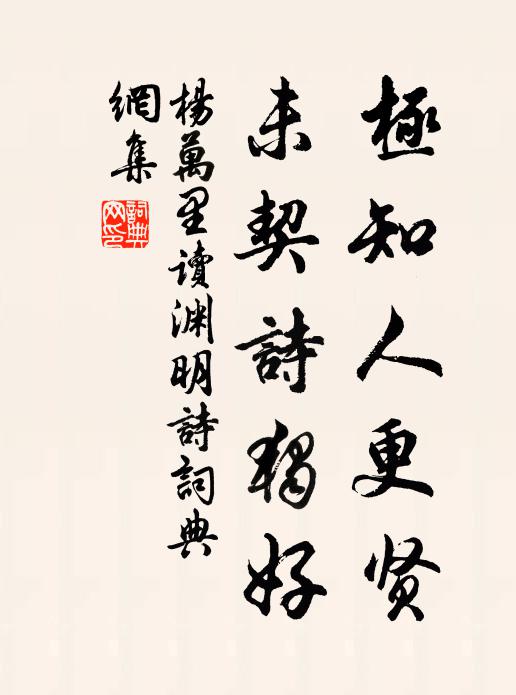 極知人更贤
未契詩独好
楊萬里讀渊明詩詞典
網集
詞典
网印